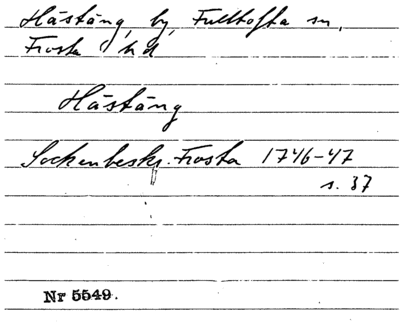 Hästäng, by, Fulltofta sn,
Frosta hd
Hästäng
Sockenbeskr. Frosta 1746-47
s. 37
Nr 5549.